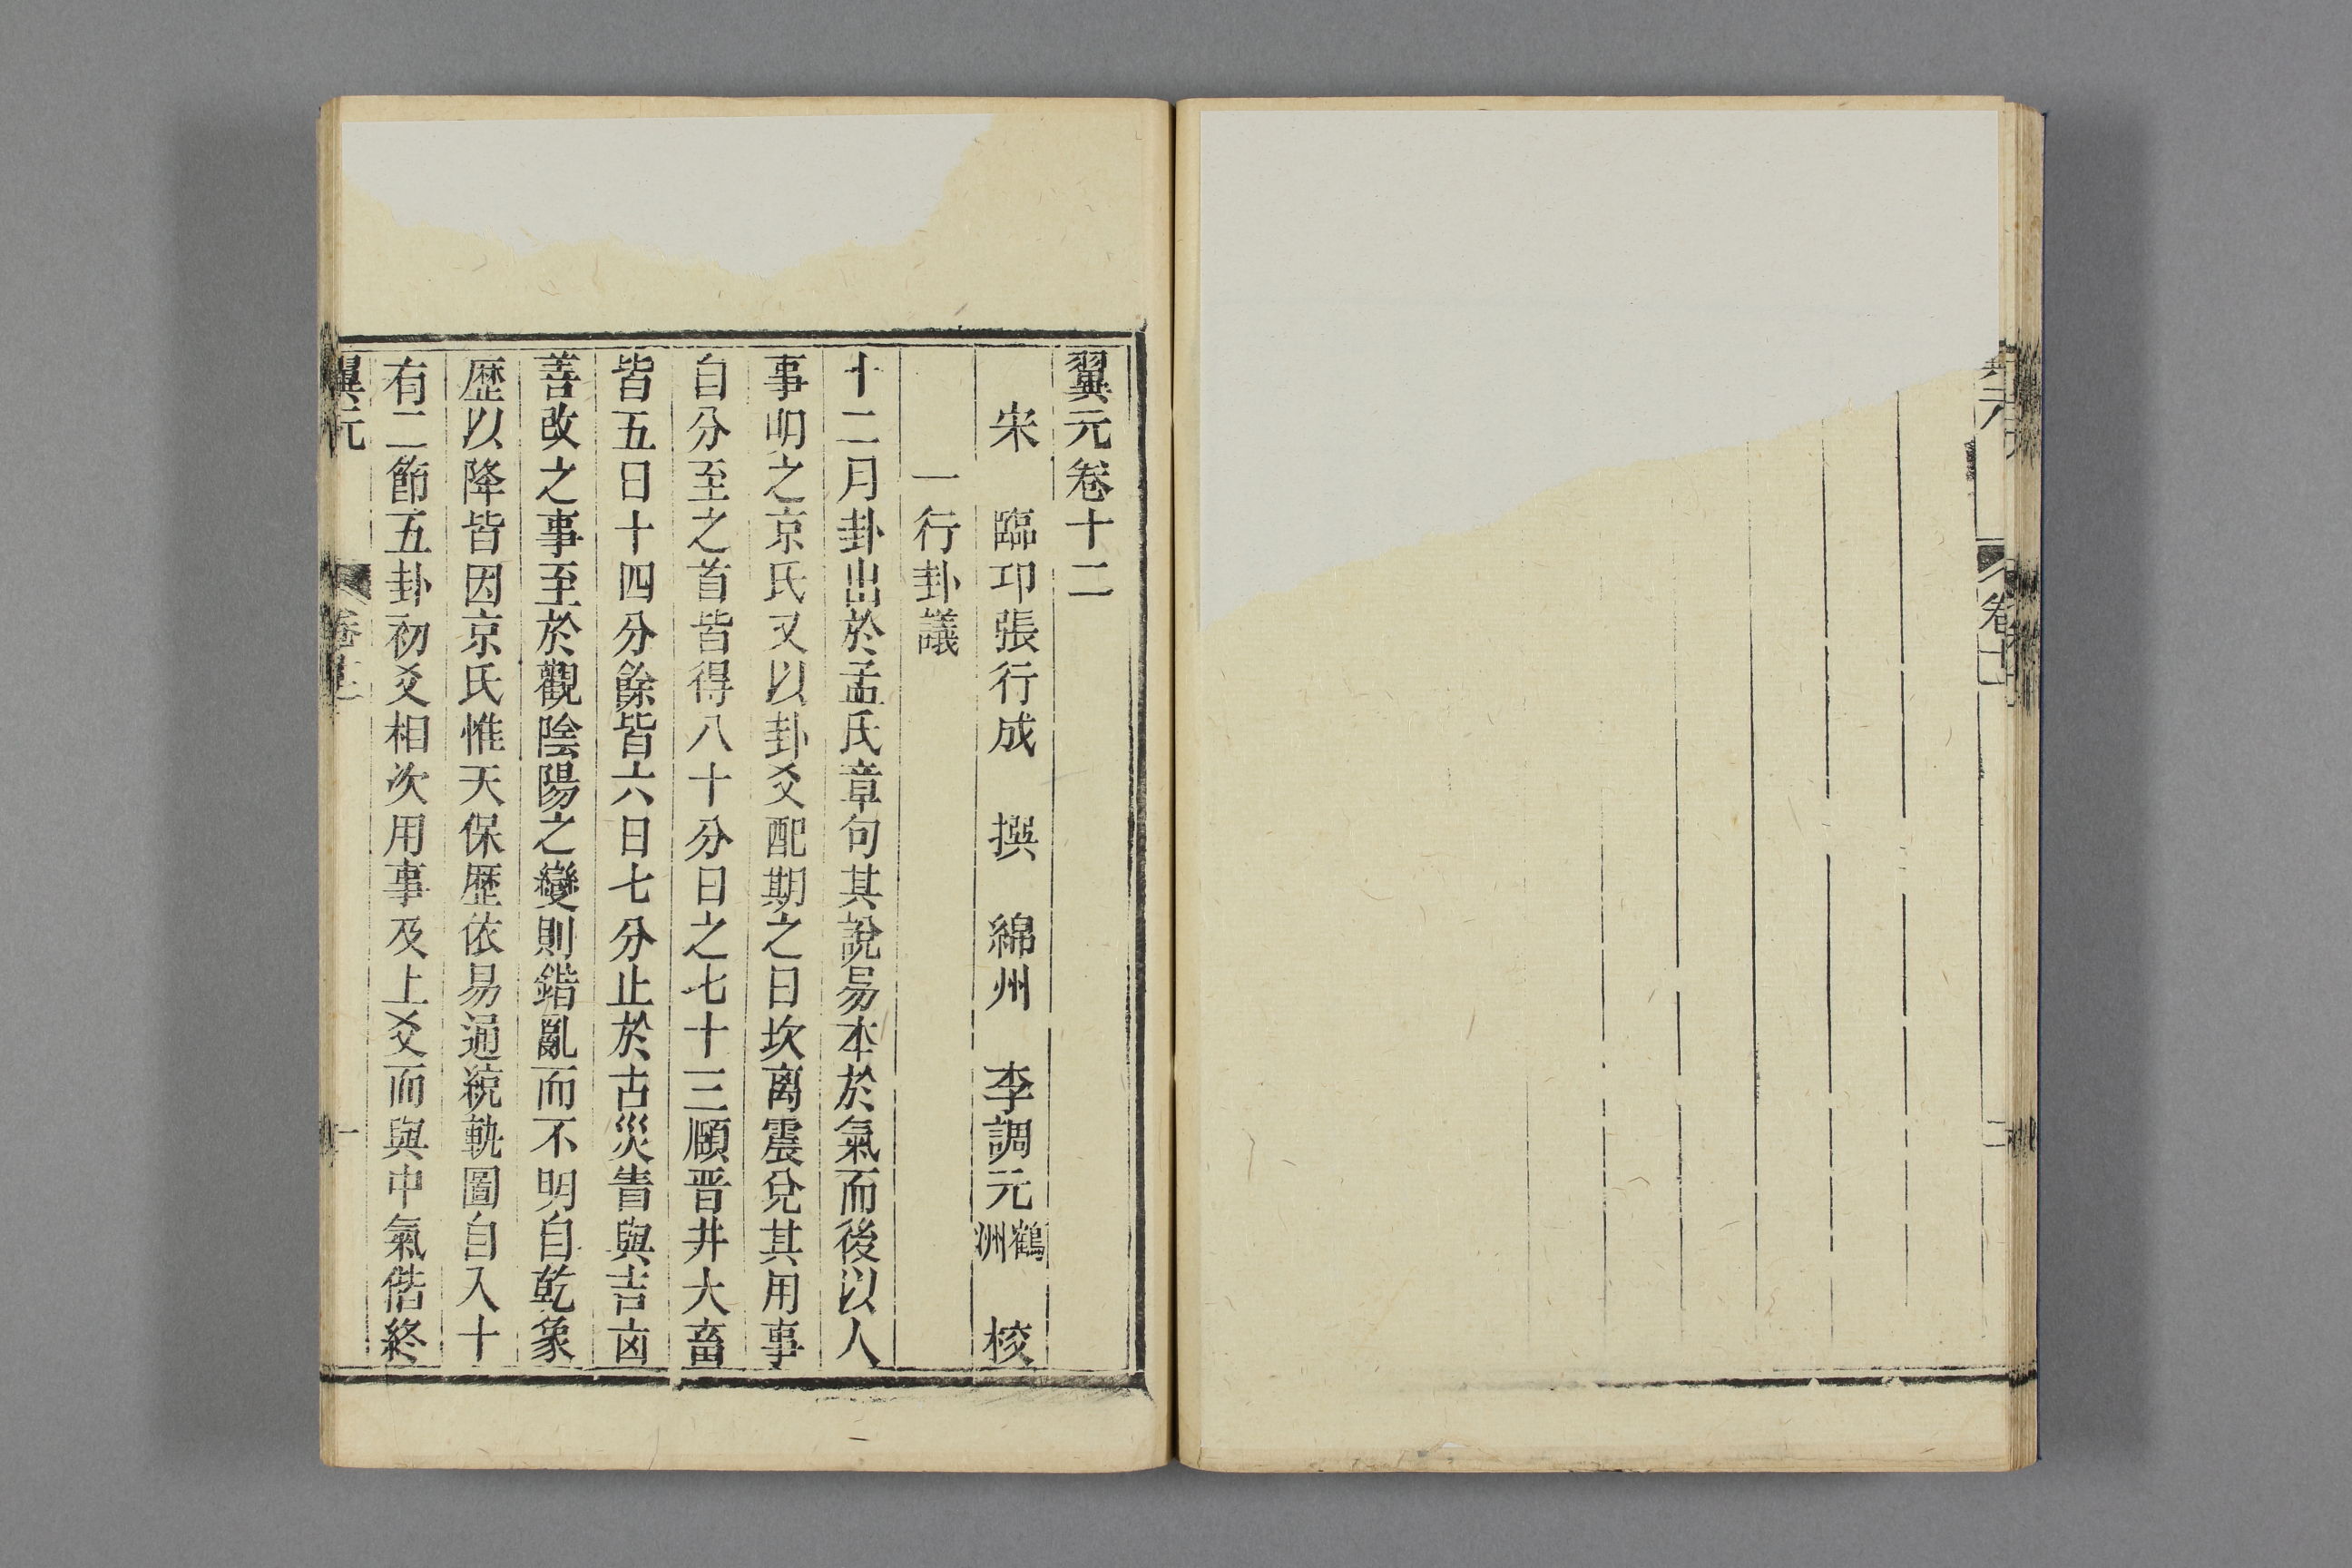 翼元卷十二
宋 臨卭張行成 撰 綿州 李調元鶴洲 校
一行卦議
十二月卦出於孟氏章句其說易本於氣而後以人
事明之京氏又以卦爻配期之日坎离震兌其用事
自分至之首皆得八十分日之七十三頤晋井大畜
皆五日十四分餘皆六日七分止於古災眚與吉凶
善改之事至於觀陰陽之變則錯亂而不明自乾象
歴以降皆因京氏惟天保歴依易通統軌圖自入十
有二節五卦初爻相次用事及上爻而與中氣偕終
翼元 卷十二 一